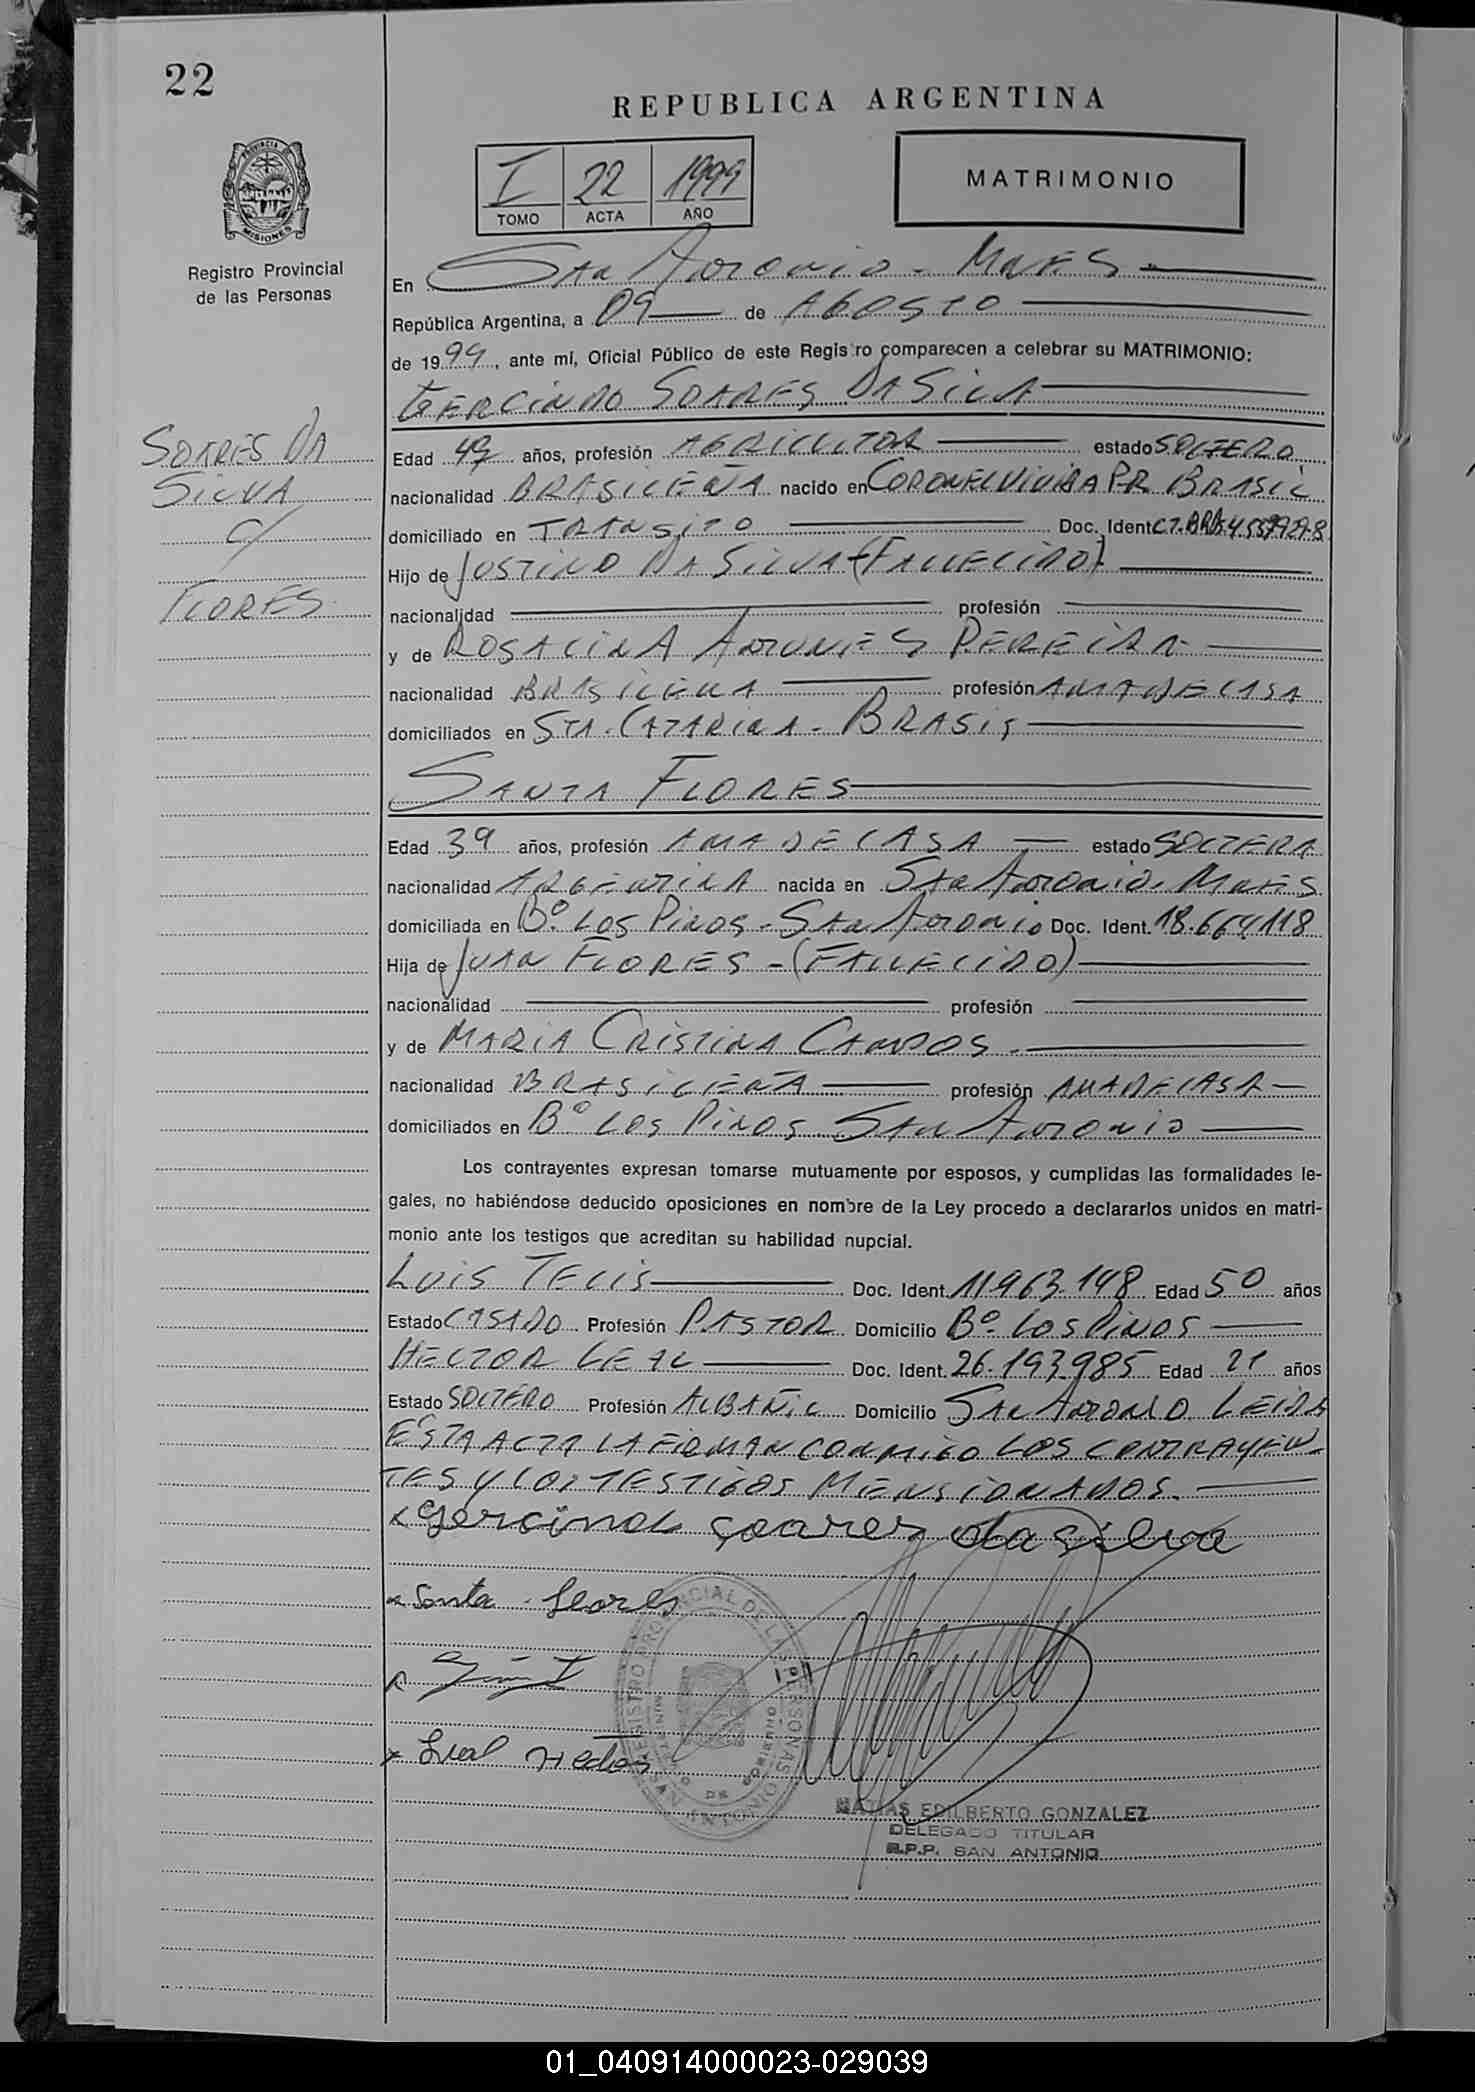 22
REPUBLICA ARGENTINA
I 22 1999
TOMO ACTA AÑO
MATRIMONIO
PROVINCIA
MISIONES
Registro Provincial
de las Personas
SOARES DA
SILVA
C/
FLORES
En SAN ANTONIO - MNES
República Argentina, a 09 de AGOSTO
de 1999, ante mí, Oficial Público de este Registro comparecen a celebrar su MATRIMONIO:
SOARES DA SILVA
Edad 49 años, profesión AGRICULTOR estado SOLTERO
nacionalidad BRASILEÑA nacido en CORONEL VIVIDA PR BRASIL
domiciliado en TRANSITO Doc. Ident CI. BRA
Hijo de JUSTINO DA SILVA - (FALLECIDO)
nacionalidad profesión
y de ROSALINA ANTUNES PEREIRA
nacionalidad BRASILEÑA profesión AMA DE CASA
domiciliados en STA. CATARINA - BRASIL
SANTA FLORES
Edad 39 años, profesión AMA DE CASA estado SOLTERA
nacionalidad ARGENTINA nacida en SAN ANTONIO. MNES
domiciliada en Bº. LOS PINOS - SAN ANTONIO Doc. Ident. 18.664.118
Hija de JUAN FLORES - (FALLECIDO)
nacionalidad profesión
y de MARIA CRISTINA CAMPOS
nacionalidad BRASILEÑA profesión AMA DE CASA
domiciliados en Bº LOS PINOS SAN ANTONIO
Los contrayentes expresan tomarse mutuamente por esposos, y cumplidas las formalidades le-
gales, no habiéndose deducido oposiciones en nombre de la Ley procedo a declararlos unidos en matri-
monio ante los testigos que acreditan su habilidad nupcial.
LUIS TELIS Doc. Ident. 11.963.148 Edad 50 años
Estado CASADO Profesión PASTOR Domicilio Bº. LOS PINOS
HECTOR LEAL Doc. Ident. 26.193.985 Edad 21 años
Estado SOLTERO Profesión ALBAÑIL Domicilio SAN ANTONIO LEIDA
ESTA ACTA LA FIRMAN CONMIGO LOS CONTRAYEN-
TES Y LOS TESTIGOS MENSIONADOS.
soares da silva
Santa
Leal
MATIAS EDILBERTO GONZALEZ
DELEGADO TITULAR
R.P.P. SAN ANTONIO
01_040914000023-029039